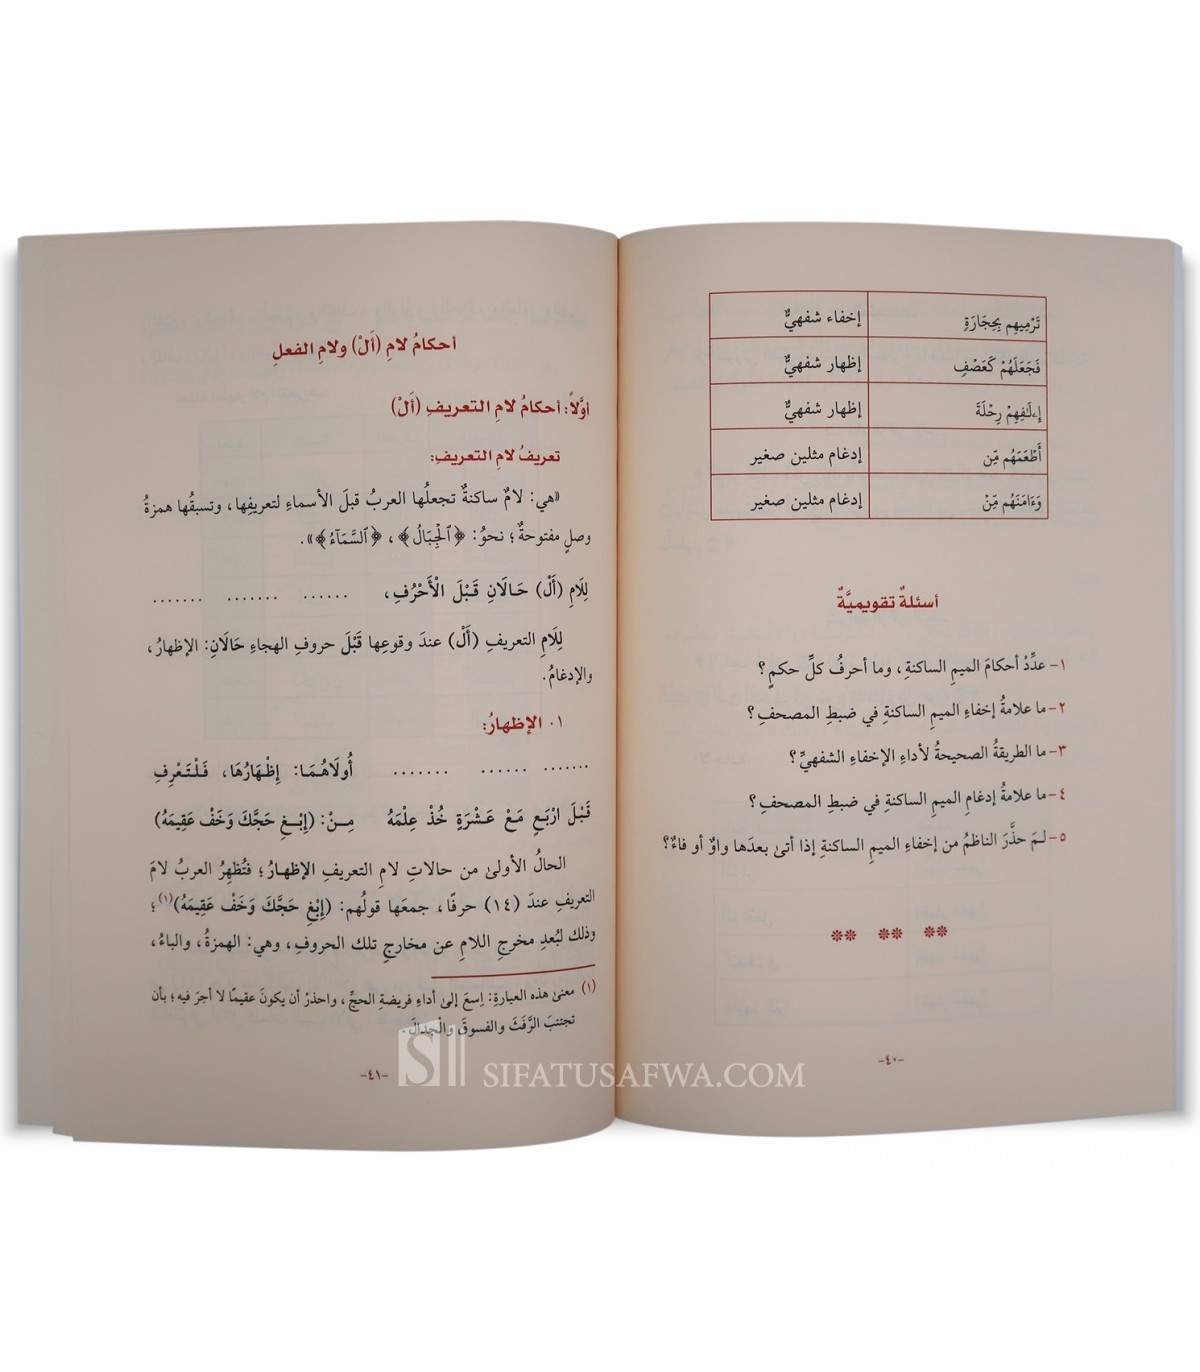 تَرْمِيهِم بِحِجَارَةٍ إخفاء شفهيٌّ
فَجَعَلَهُمْ كَعَصْفٍ إظهار شفهيٌّ
إِۦلَـٰفِهِمْ رِحْلَةَ إظهار شفهيٌّ
أَطْعَمَهُم مِّن إدغام مثلين صغير
وَءَامَنَهُم مِّنْ إدغام مثلين صغير
أسئلةٌ تقويميَّةٌ
١- عدِّدْ أحكامَ الميمِ الساكنةِ، وما أحرفُ كلِّ حكمٍ؟
٢- ما علامةُ إخفاءِ الميمِ الساكنةِ في ضبطِ المصحفِ؟
٣- ما الطريقةُ الصحيحةُ لأداءِ الإخفاءِ الشفهيِّ؟
٤- ما علامةُ إدغامِ الميمِ الساكنةِ في ضبطِ المصحفِ؟
٥- لمَ حذَّرَ الناظمُ من إخفاءِ الميمِ الساكنةِ إذا أتىٰ بعدَها واوٌ أو فاءٌ؟
** ** **
-٤٠-
أحكامُ لامِ (اَلْ) ولامِ الفعلِ
أوَّلاً: أحكامُ لامِ التعريفِ (اَلْ)
تعريفُ لامِ التعريفِ:
«هي: لامٌ ساكنةٌ تجعلُها العربُ قبلَ الأسماءِ لتعريفِها، وتسبقُها همزةُ
وصلٍ مفتوحةٌ؛ نحوُ: ﴿ٱلْجِبَالُ﴾، ﴿ٱلسَّمَآءُ﴾».
لِلَامِ (اَلْ) حَالَانِ قَبْلَ الْأَحْرُفِ، ...... ....... .......
لِلَامِ التعريفِ (اَلْ) عندَ وقوعِها قَبْلَ حروفِ الهجاءِ حَالَانِ: الإظهارُ،
والإدغامُ.
١. الإظهارُ:
....... ...... ....... أُولَاهُمَا: إِظْهَارُهَا، فَلْتَعْرِفِ
قَبْلَ ارْبَعٍ مَعْ عَشْرَةٍ خُذْ عِلْمَهُ مِنْ: (إِبْغِ حَجَّكَ وَخَفْ عَقِيمَهُ)
الحالُ الأولىٰ من حالاتِ لامِ التعريفِ الإظهارُ؛ فتُظهِرُ العربُ لامَ
التعريفِ عندَ (١٤) حرفًا، جمعَها قولُهم: (إِبْغِ حَجَّكَ وَخَفْ عَقِيمَهُ)(١)؛
وذلك لبُعدِ مخرجِ اللامِ عن مخارجِ تلك الحروفِ، وهي: الهمزةُ، والباءُ،
(١) معنىٰ هذه العبارةِ: اِسعَ إلىٰ أداءِ فريضةِ الحجِّ، واحذرْ أن يكونَ عقيمًا لا أجرَ فيه؛ بأن
تجتنبَ الرَّفَثَ والفسوقَ والْجِدالَ.
-٤١-
SIFATUSAFWA.COM